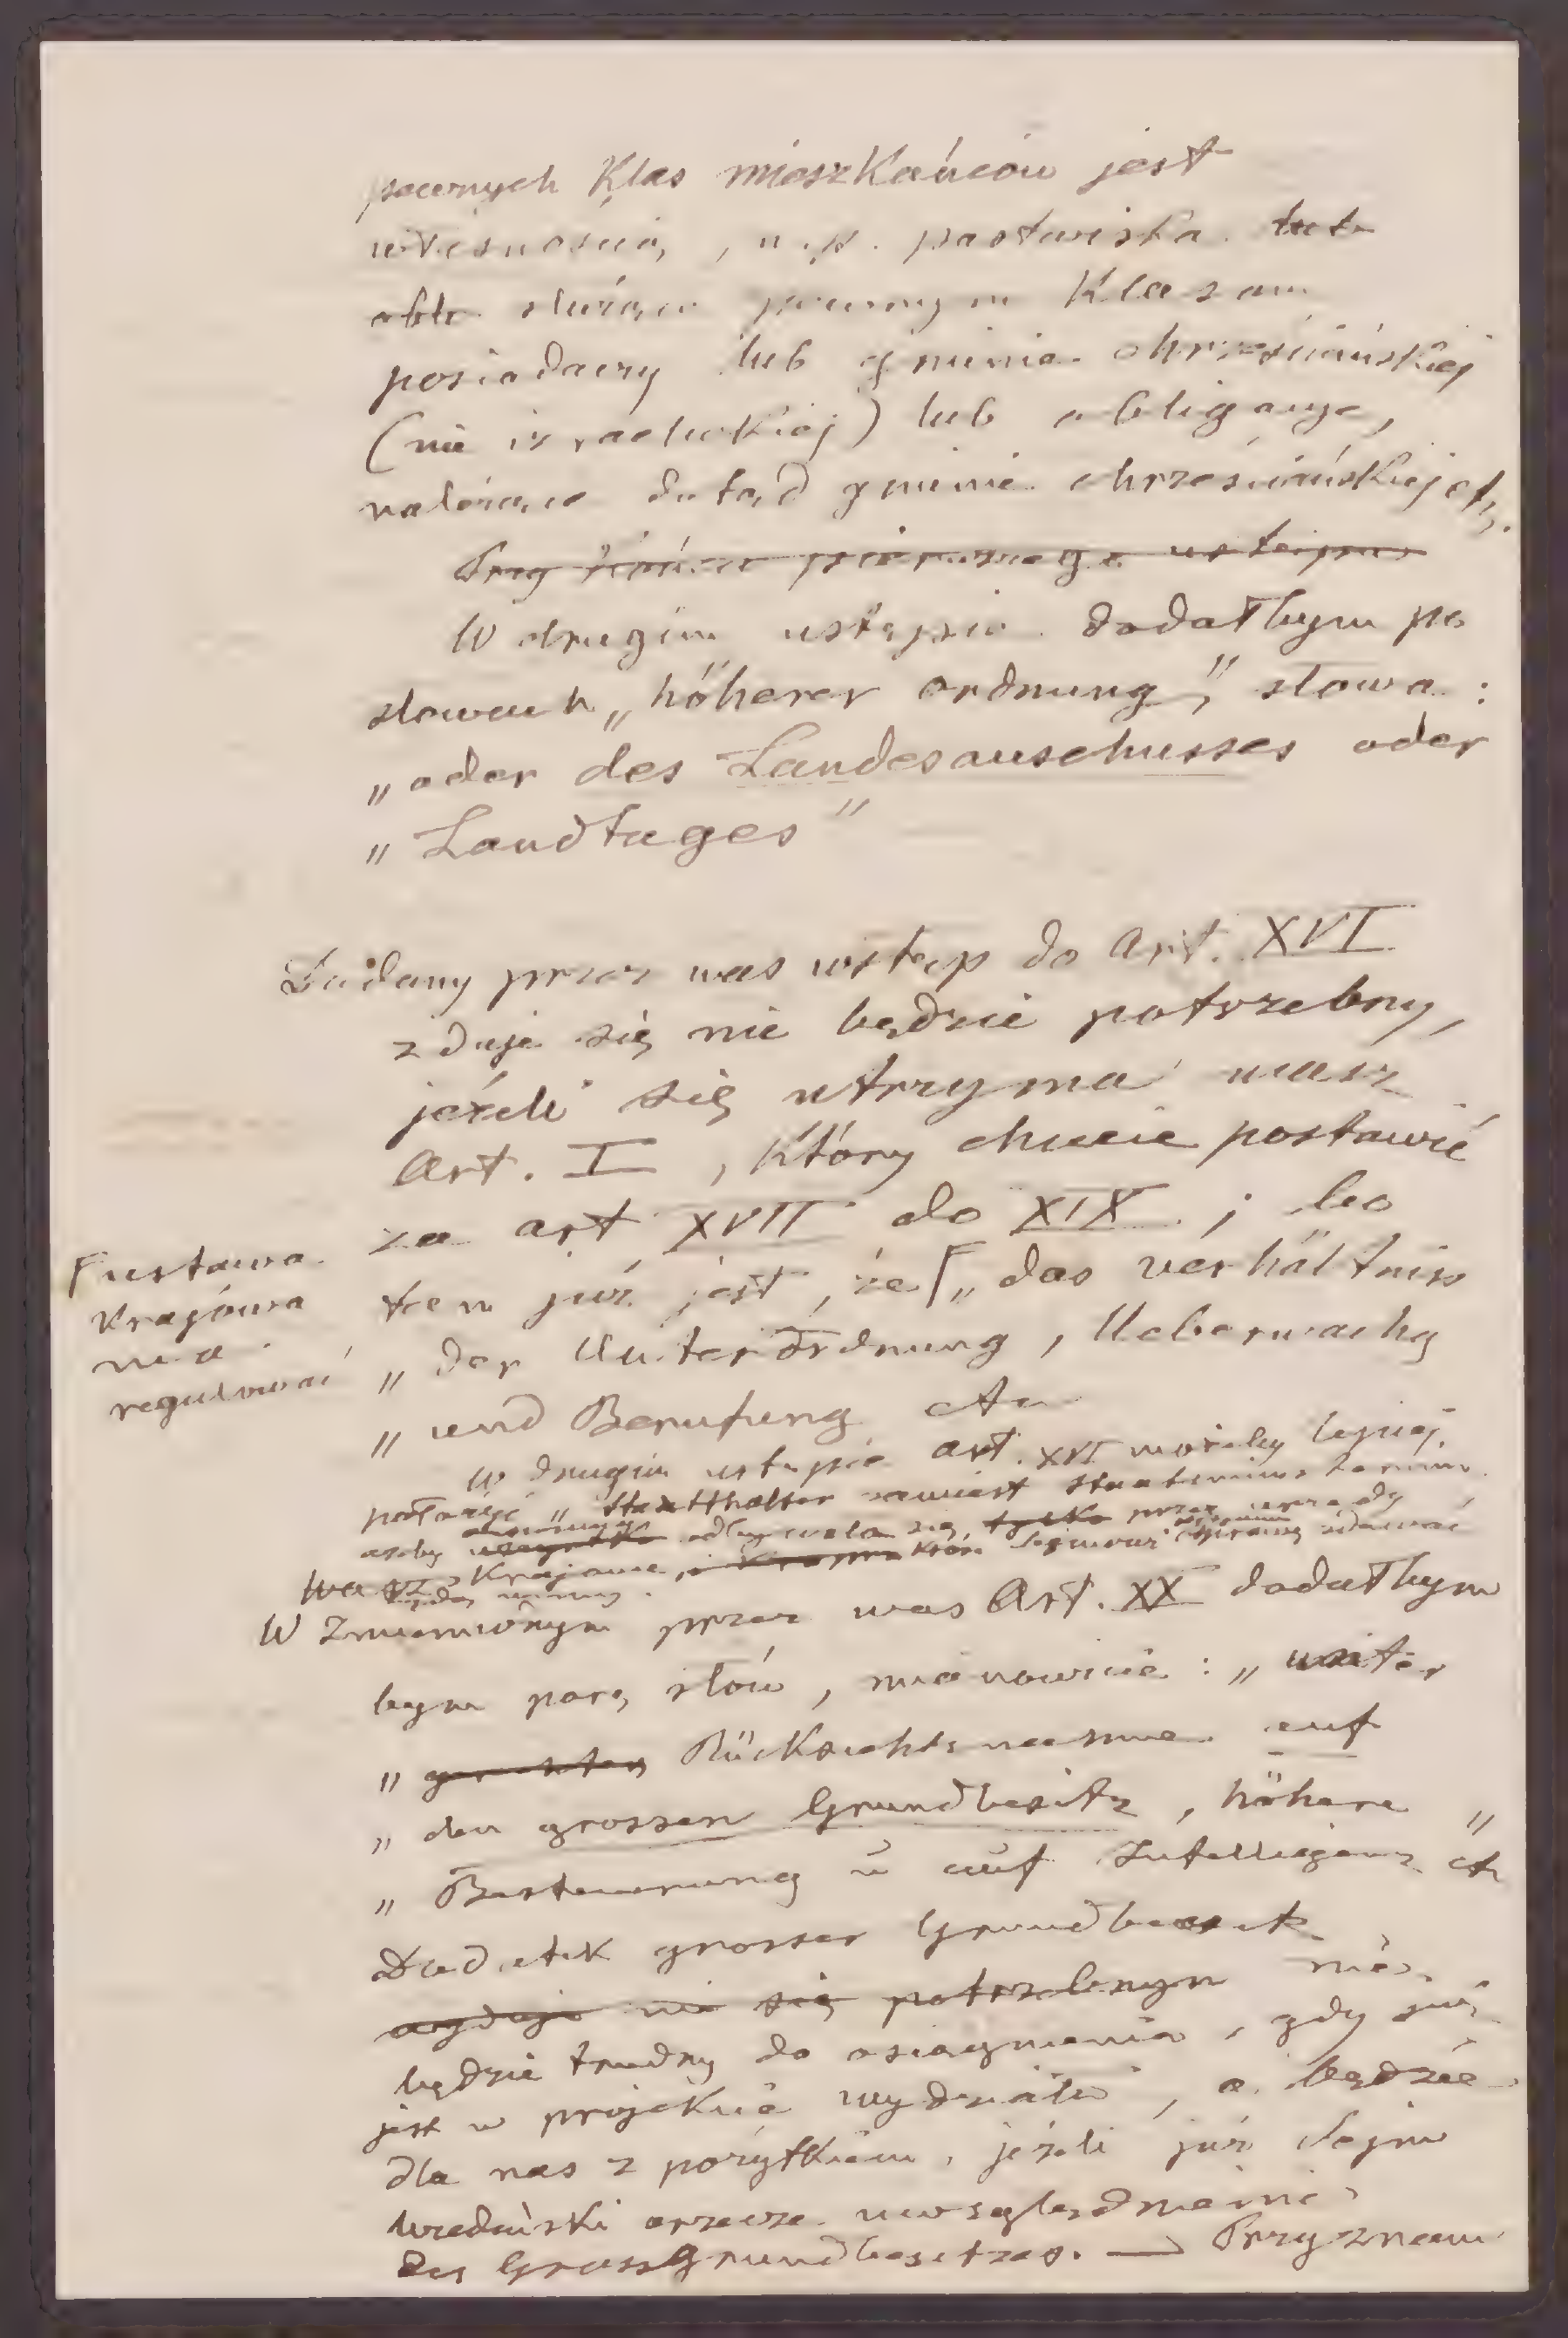 pewnych Klas mieszkańców jest
własnością, n.p. pastwiska
służące pewnym Klasom
posiadaczy lub gminie chrześciańskiej
(nie izraelickiej) lub obligacye,
należące dotąd gminie chrześciańskiej etc.
Przy końcu pierwszego ustępu
W drugim ustępie dodałbym po
słowach „höherer Ordnung" słowa:
„oder des Landesauschusses oder
„Landtages"
Żądany przez was wstęp do Art. XVI
zdaje się nie będzie potrzebny,
jeżeli się utrzyma wasz
Art. I, który chcecie postawić
za art XVII do XIX; bo
tem już jest, że „das Verhältniss
„der Unterordnung, Ueberwachg
„und Berufung etc
Γ ustawa
Krajowa
ma
regulować
W drugim ustępie art. XVI możeby lepiej
położyć „Statthalter zamiast
osoby odbywała się tylko przez urzędy
Krajowe, które Sejmowi sprawę zdawać
będą winny.
W Zmienionym przez was Art. XX dodałbym
bym parę słów, mianowicie: „unter
„Rücksichtsnahme auf
„den grossen Grundbesitz, höhere "
„Besteuerung u auf Intelligenz etc
Dodatek grosser Grundbesitz
wydaje mi się potrzebnym nie
będzie trudny do osiągnienia, gdy już
jest w projekcie wydziału, a będzie
dla nas z pożytkiem, jeżeli już Sejm
wiedeński orzecze uwzględnienie
des Grossgrundbesitzes. — Przyznam